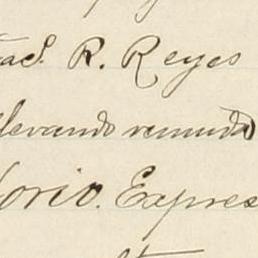 R. Reyes
llevando remuda
orio. Expres